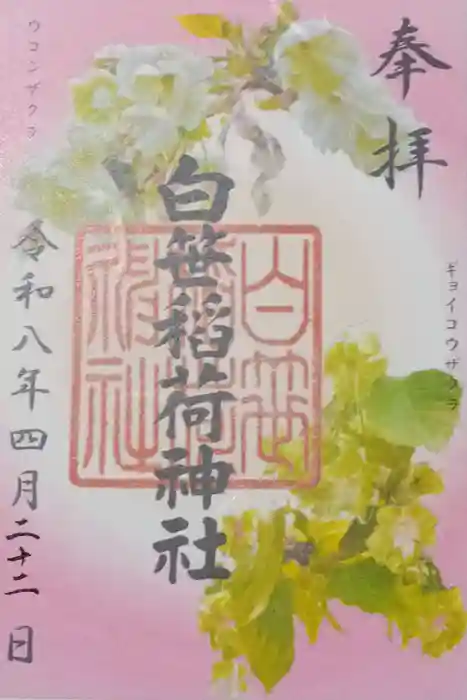 奉拝
ギョイコウザクラ
白笹稲荷神社
白笹稲荷神社
ウコンザクラ
令和八年四月二十二日